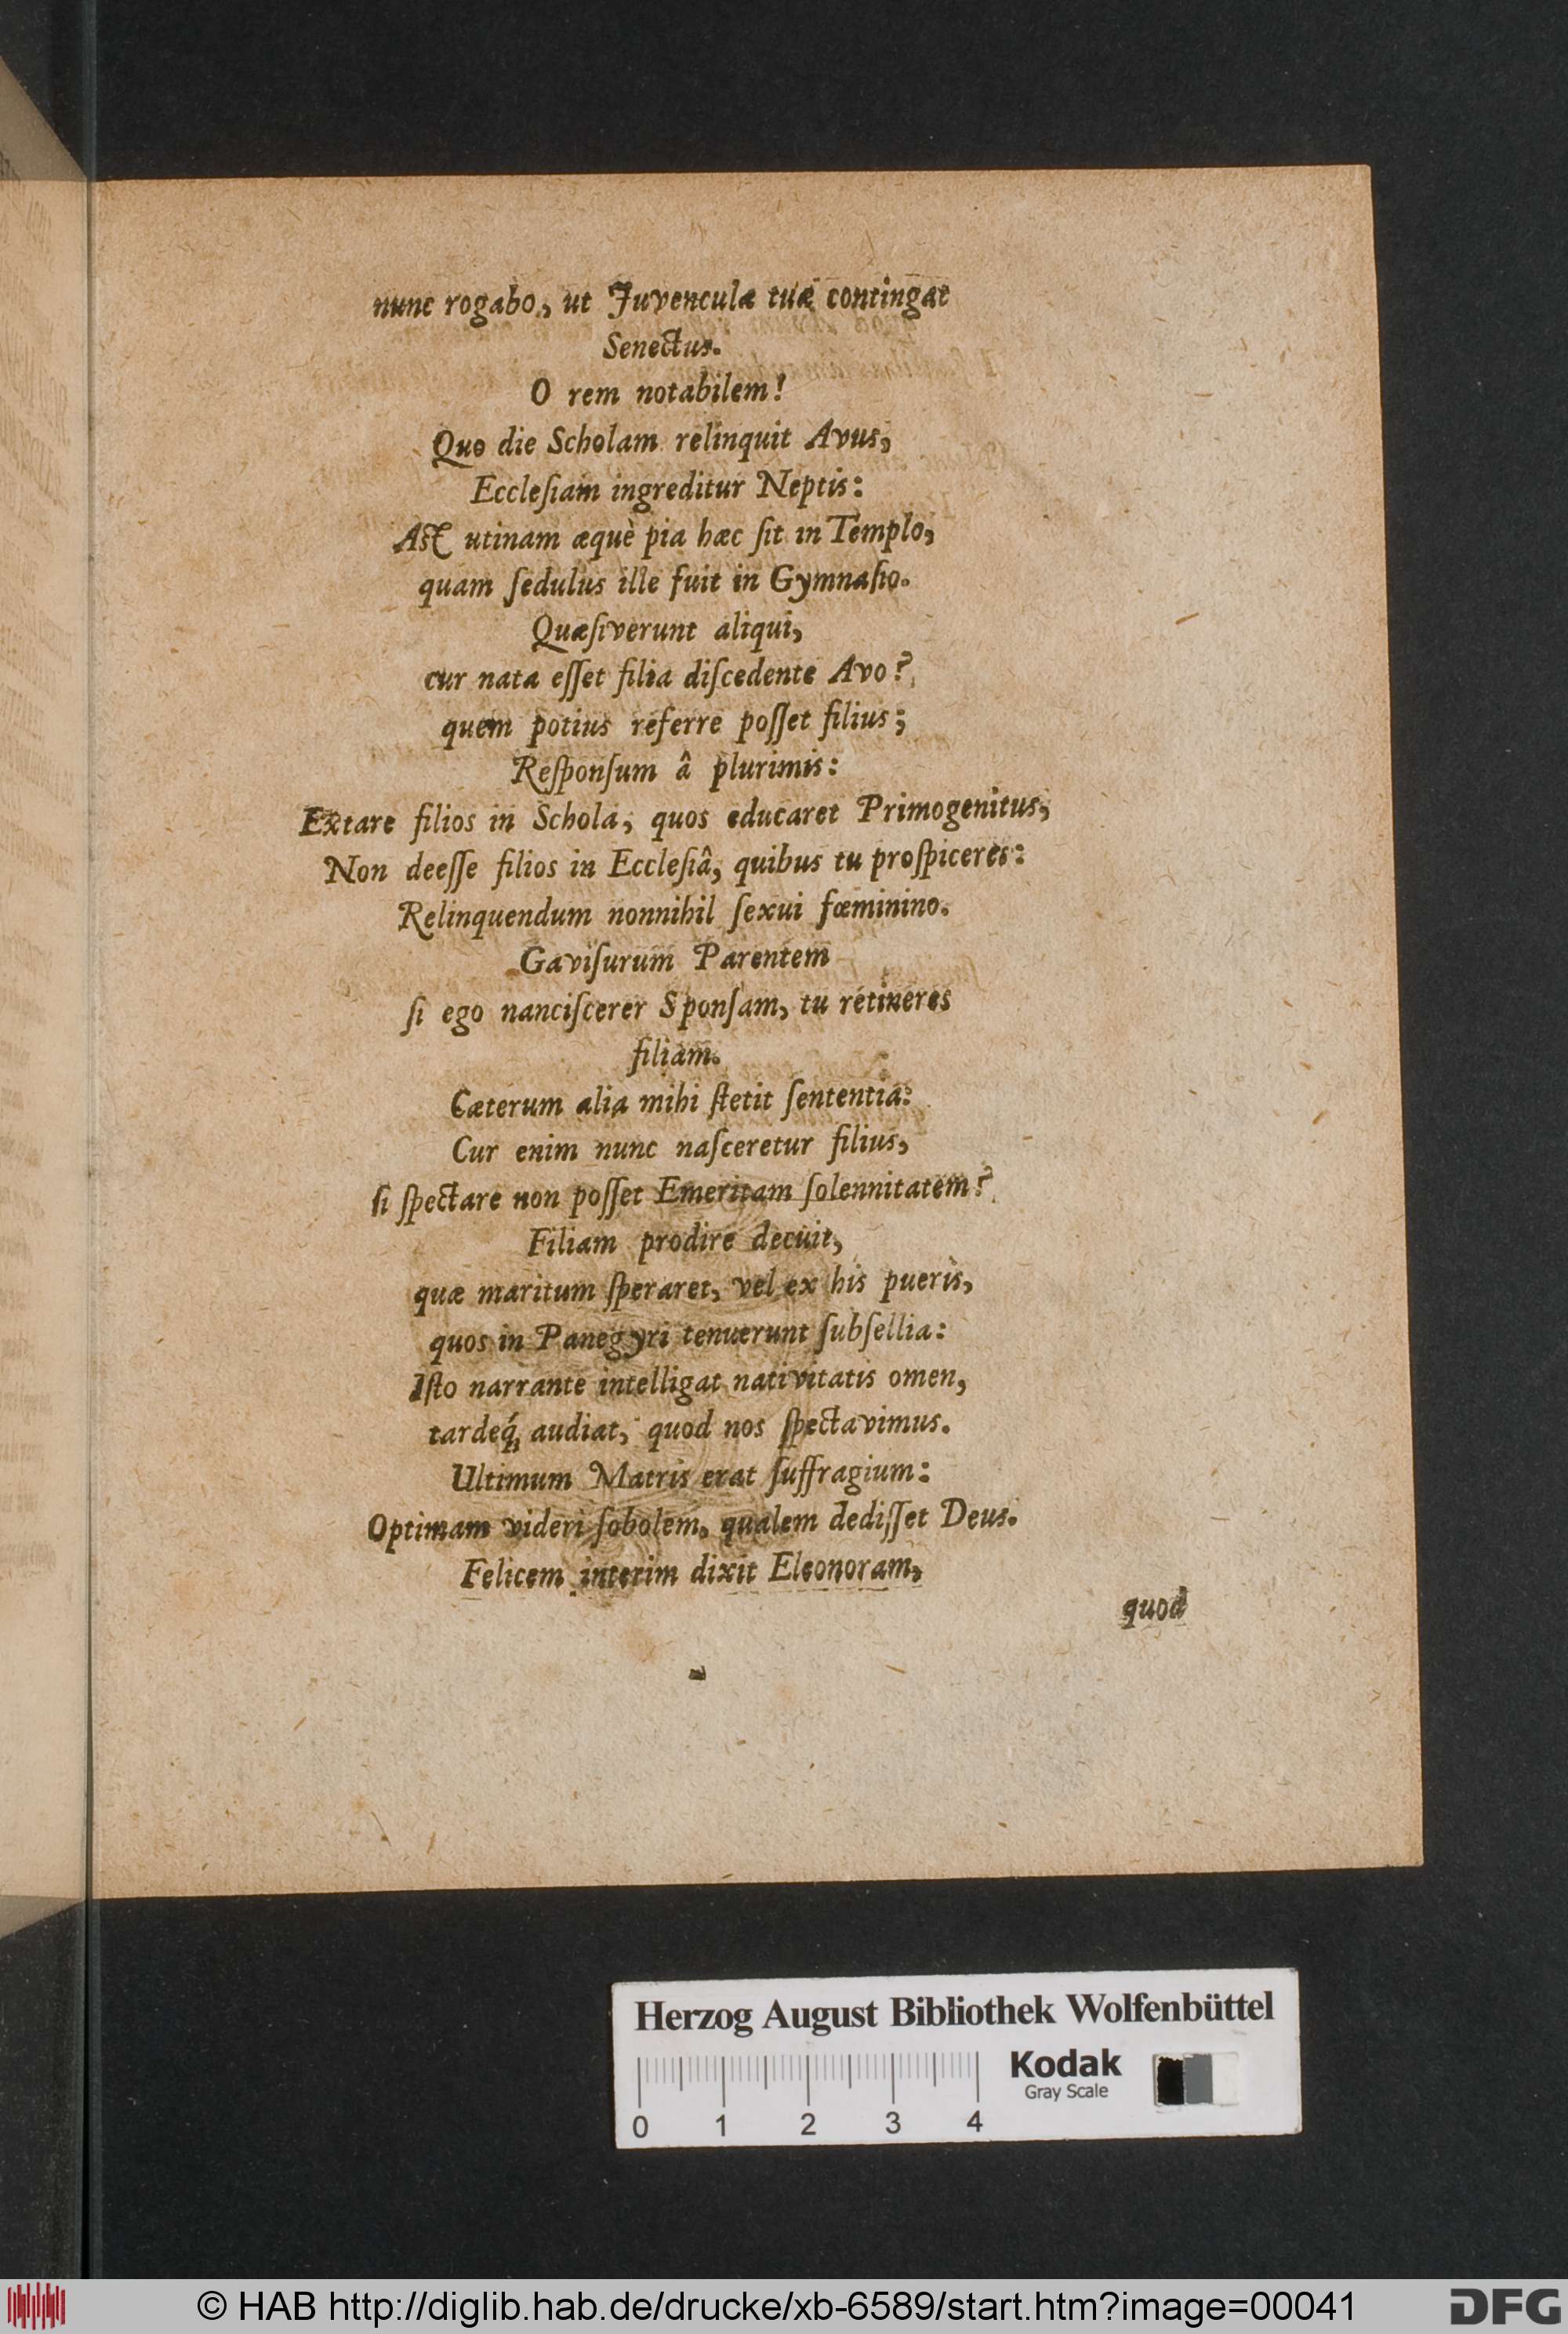 nunc rogabo, ut Juvenculæ tuæ contingat
Senectus.
O rem notabilem!
Quo die Scholam relinquit Avus,
Eccleſiam ingreditur Neptis:
Aſt utinam æquè pia hæc ſit in Templo,
quam ſedulus ille fuit in Gymnaſio.
Quæſiverunt aliqui,
cur nata eſſet filia diſcedente Avo?
quem potius referre poſſet filius;
Reſponſum â plurimis:
Extare filios in Schola, quos educaret Primogenitus,
Non deeſſe filios in Eccleſiâ, quibus tu proſpiceres:
Relinquendum nonnihil ſexui fœminino.
Gaviſurum Parentem
ſi ego nanciſcerer Sponſam, tu retineres
filiam.
Cæterum alia mihi ſtetit ſententia:
Cur enim nunc naſceretur filius,
ſi ſpectare non poſſet Emeritam ſolennitatem?
Filiam prodire decuit,
quæ maritum ſperaret, vel ex his pueris,
quos in Panegyri tenuerunt ſubſellia:
Iſto narrante intelligat nativitatis omen,
tardeq́; audiat, quod nos ſpectavimus.
Ultimum Matris erat ſuffragium:
Optimam videri ſobolem, qualem dediſſet Deus.
Felicem interim dixit Eleonoram,
quod
Herzog August Bibliothek Wolfenbüttel
Kodak
Gray Scale
0 1 2 3 4
© HAB http://diglib.hab.de/drucke/xb-6589/start.htm?image=00041
DFG